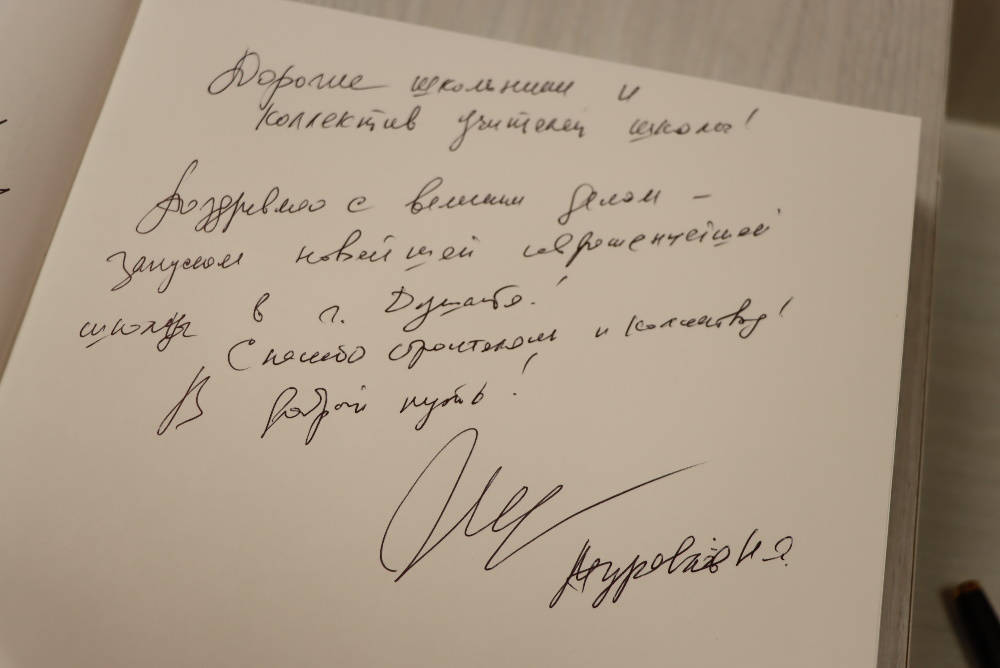 Дорогие школьники и
коллектив учителей школы!
Поздравляю с великим делом –
запуском новейшей современнейшей
школы в г. Душанбе!
Спасибо строителям и коллективу!
В добрый путь!
Журова